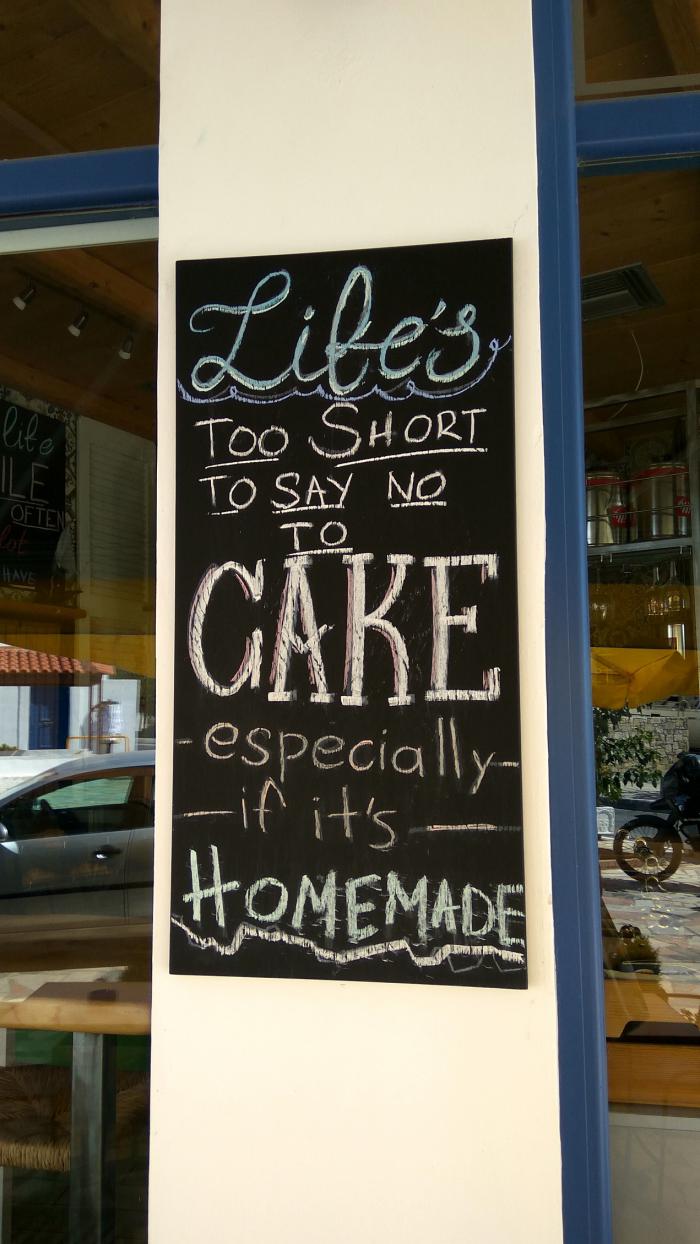 life
ILE
OFTEN
lot
HAVE
Life's
TOO SHORT
TO SAY NO
TO
CAKE
-especially-
-if it's-
HOMEMADE